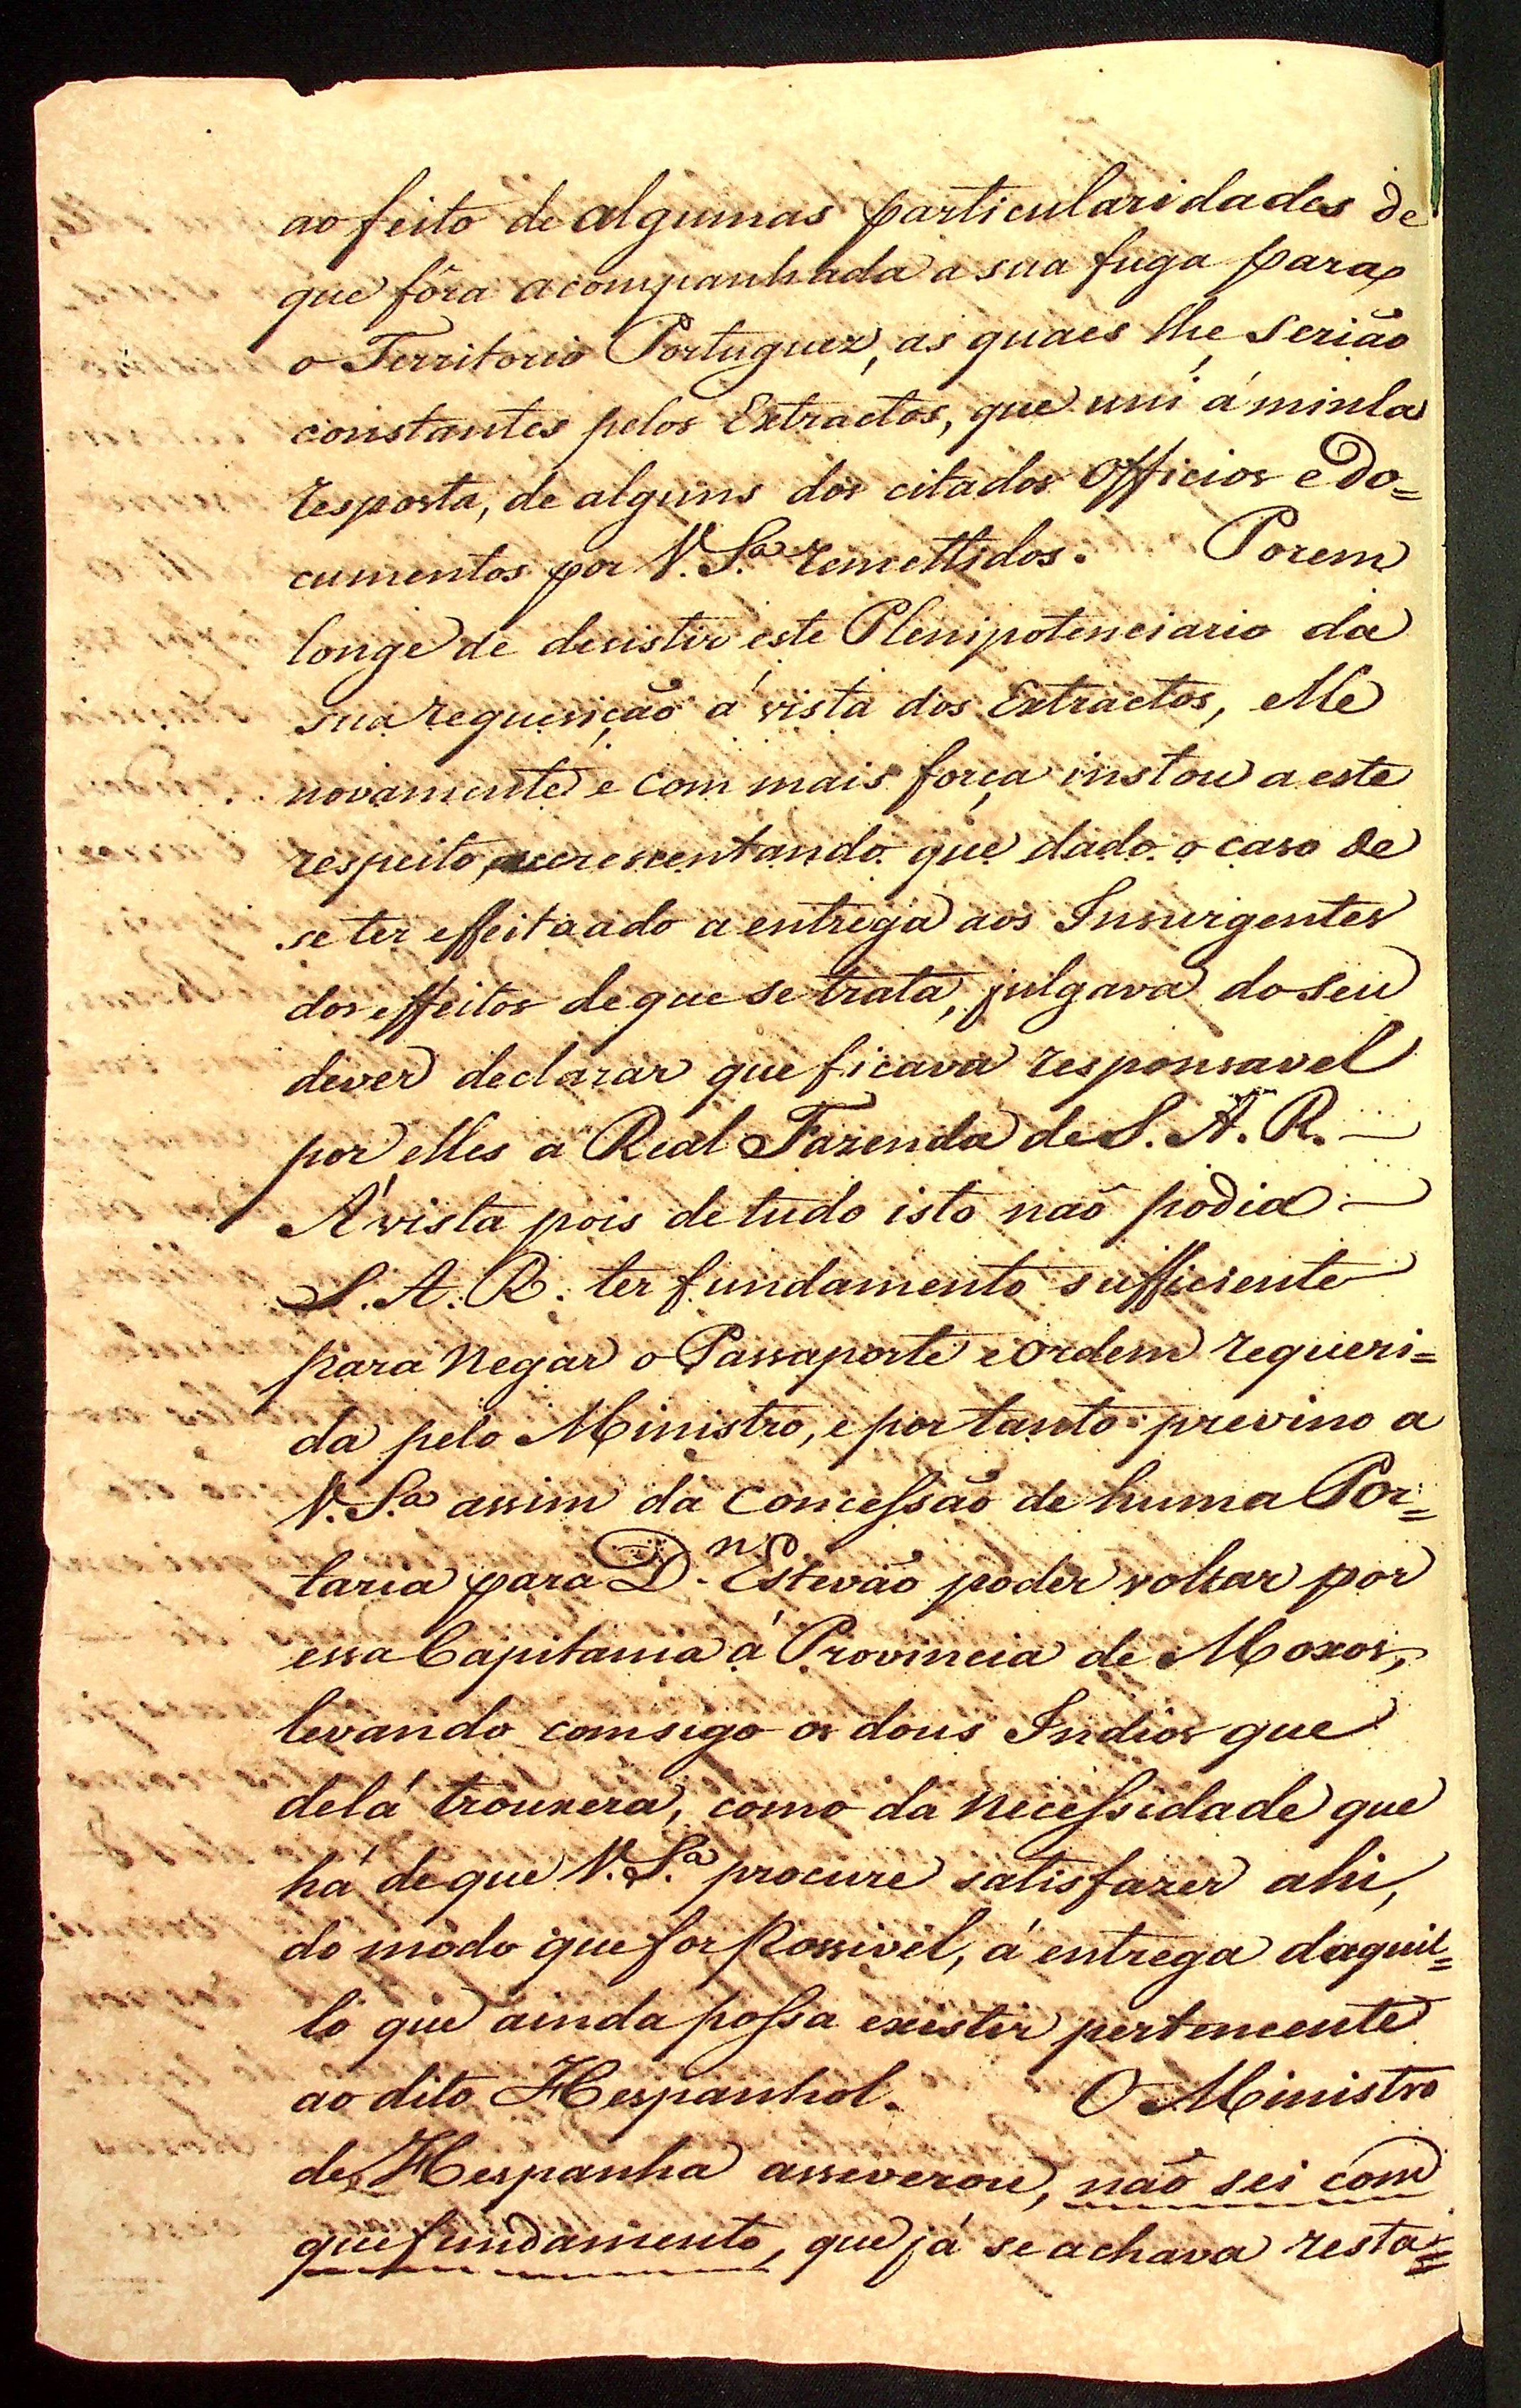 ao feito de algumas particularidades de
que fôra acompanhada a sua fuga para
o Territorio Portuguez, as quaes lhe serião
constantes pelos Extractos, que uni á minha
resposta, de alguns dos citados Officios e Do=
cumentos por V. S.ª remettidos. Porem
longe de desistir este Plenipotenciario da
sua requisição á vista dos Extractos, elle
novamente e com mais força instou a este
respeito, accrescentando que dado o caso de
se ter effeituado a entrega aos Insurgentes
dos effeitos de que se trata, julgava do seu
dever declarar que ficava responsavel
por elles a Real Fazenda de S. A. R. —
Á vista pois de tudo isto naõ podia —
S. A. R. ter fundamento sufficiente
para negar o Passaporte e Ordem requeri=
da pelo Ministro, e por tanto previno a
V. S.ª assim da Concessão de huma Por=
taria para D.n Estevão poder voltar por
essa Capitania á Provincia de Moxos,
levando comsigo os dous Indios que
de lá trouxera, como da necessidade que
há de que V. S.ª procure satisfazer ahi,
do modo que for possivel, á entrega daquil=
lo que ainda possa existir pertencente
ao dito Hespanhol. O Ministro
de Hespanha asseverou, não sei com
que fundamento, que já se achava resta=